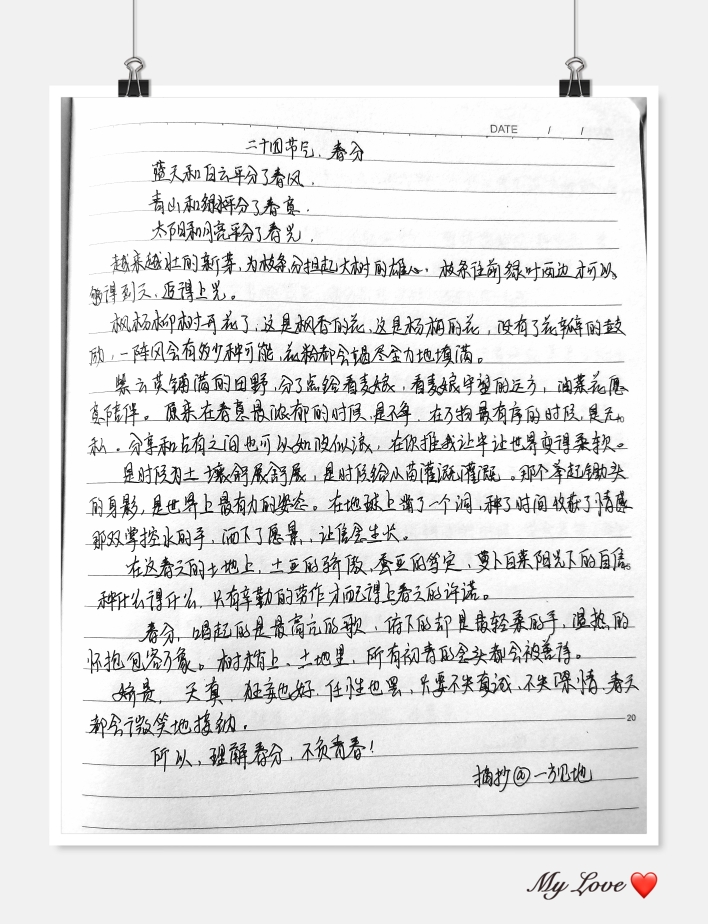 DATE / /
二十四节气、春分
蓝天和白云平分了春风、
青山和绿水平分了春意、
太阳和月亮平分了春光、
越来越壮的新芽、为枝条分担起大树的雄心、枝条往前绿叶两边才可以
够得到天、迎得上光。
枫杨柳树开花了、这是枫香的花、这是杨梅的花、没有了花瓣的鼓
励、一阵风会有多少种可能、花粉都会竭尽全力地填满。
紫云英铺满的田野、分了点给看麦娘、看麦娘守望的远方、油菜花愿
意陪伴。原来在春意最浓郁的时候、是 在万物最有序的时段、是无
私、分享和占有之间也可以如此 在你推我让 让世界变得柔软。
是时段为土壤舒展舒展、是时段给小苗灌溉灌溉。那个举起锄头
的身影、是世界上最有力的姿态。在地球上凿了一个洞、种了时间收获了情感
那双掌控水的手、洒下了愿景、让信念生长。
在这春天的土地上、土豆的骄傲、蚕豆的笃定、萝卜白菜阳光下的自信
种什么得什么、只有辛勤的劳作才配得上春天的许诺。
春分、唱起的是最高亢的歌、俯下的却是最轻柔的手、温热的
怀抱包容万象。树梢上、土地里、所有初春的念头都会被善待。
娇贵、天真、狂妄也好、任性也罢、只要不失真诚、不失深情、春天
都会微笑地接纳。
20
所以、理解春分、不负青春!
摘抄@一方见地
My Love